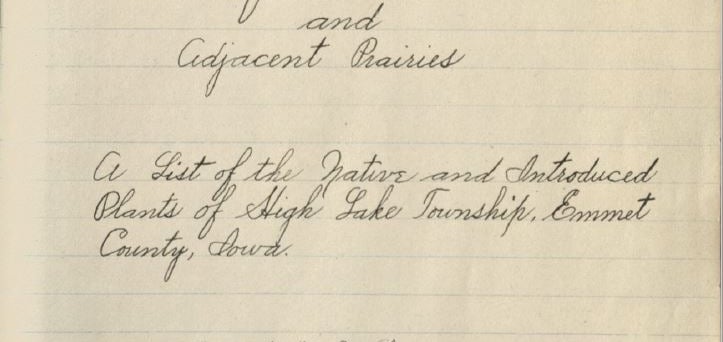 and
Adjacent Prairies
A List of the Native and Introduced
Plants of High Lake Township, Emmet
County, Iowa.